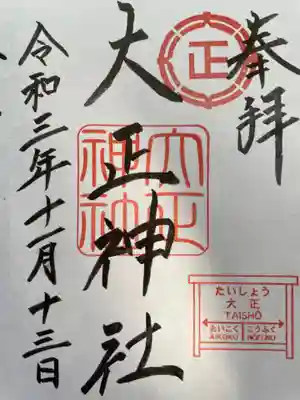 奉拝
正
大正神社
大正神社
たいしょう
大正
TAISHŌ
たいこく
こうふく
AIKOKU
令和三年十一月十三日